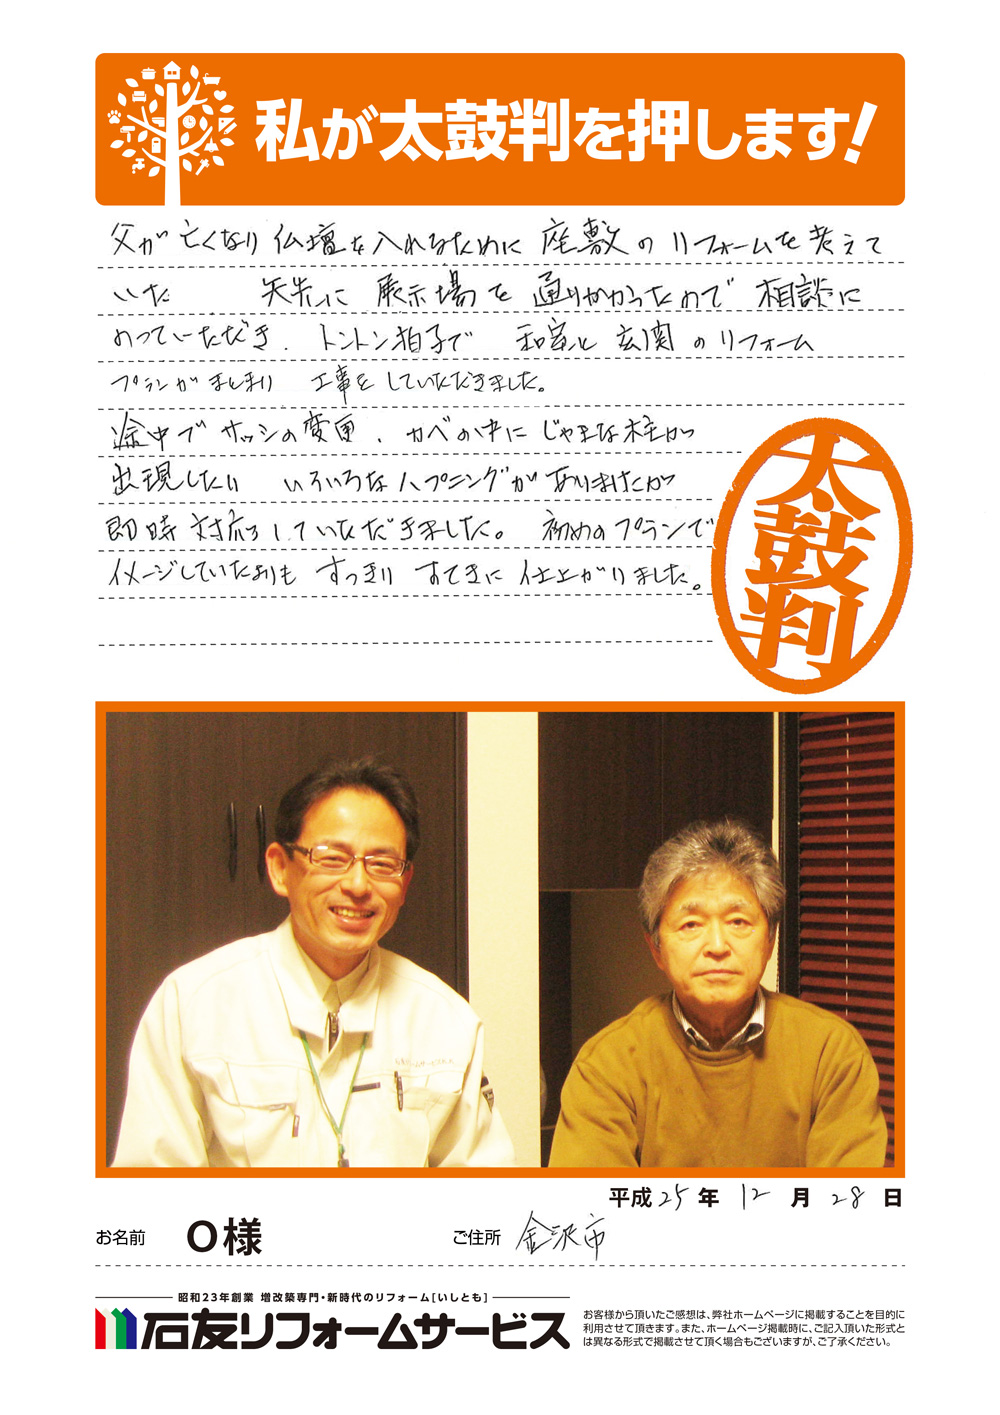 私が太鼓判を押します!
父が亡くなり仏壇を入れるために座敷のリフォームを考えて
いた 矢先に展示場を通りかかったので相談に
のっていただき、トントン拍子で 和室と玄関のリフォーム
プランがまとまり 工事をしていただきました。
途中でサッシの変更、カベの中にじゃまな柱が
出現したり いろいろなハプニングがありましたが
即時対応していただきました。 初めのプランで
イメージしていたよりも すっきり すてきに仕上がりました。
太鼓判
平成25年12月28日
お名前 O様 ご住所 金沢市
昭和23年創業 増改築専門・新時代のリフォーム[いしとも]
石友リフォームサービス
お客様から頂いたご感想は、弊社ホームページに掲載することを目的に
利用させて頂きます。また、ホームページ掲載時に、ご記入頂いた形式と
は異なる形式で掲載させて頂く場合もございますが、ご了承ください。